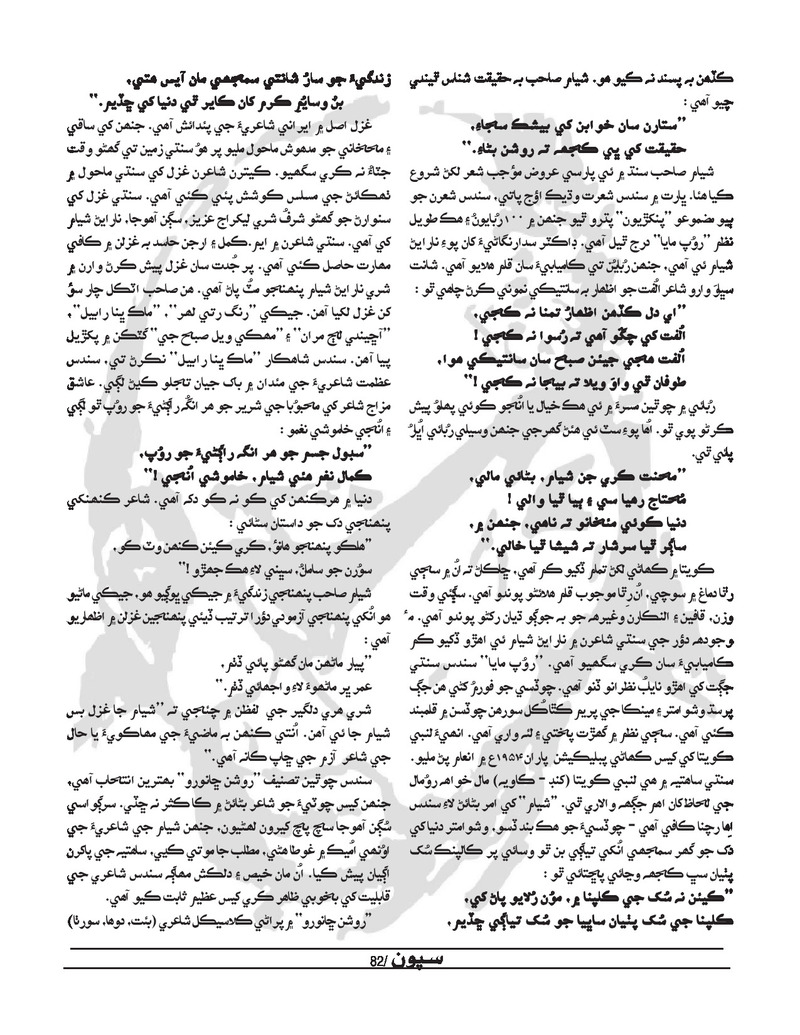 ڪڏهن به پسند نه ڪيو هو. شيام صاحب به حقيقت شناس ٿيندي
چيو آهي :
”ستارن سان خوابن کي بيشڪ سجاءِ،
حقيقت کي ڀي ڪجهه ته روشن بڻاءِ.“
شيام صاحب سنڌ ۾ ئي پارسي عروض موُجب شعر لکڻ شروع
ڪيا هئا. ڀارت ۾ سندس شعرت وڌيڪ اوُج پاتي، سندس شعرن جو
ٻيو مضموعو ”پنکڙيون“ پڌرو ٿيو جنهن ۾ ۱۰۰ رُباعيونُ ۽ هڪ طويل
نظم ”روُپ مايا“ درج ٿيل آهي. ڊاڪٽر سدارنگاڻيءَ کان پوءِ نارايڻ
شيام ئي آهي، جنهن رُباعيُن تي ڪاميابيءَ سان قلم هلايو آهي. شانت
سڀاوَ وارو شاعر اُلفت جو اظهار به سانتيڪي نموني ڪرڻ چاهي ٿو :
”اي دل ڪڏهن اظهارُ تمنا نه ڪجي،
اُلفت کي چڱو آهي ته رُسوا نه ڪجي !
اُلفت هجي جيئن صبح سان سانتيڪي هوا،
طوفان ٿي واوَ ويلا ته بيجا نه ڪجي !“
رُباعي ۾ چوٿين مسرعَ ۾ ئي هڪ خيال يا اُنجو ڪوئي پهلوُ پيش
ڪرڻو پوي ٿو. اُها پوءِ سٽ ئي هئڻ گهرجي جنهن وسيلي رُباعي اُڀار
پائي ٿي.
”محنت ڪري جن شيام، بڻائي مالي،
مُحتاج رهيا سي ۽ ٻيا ٿيا والي !
دنيا ڪوئي منخانو ته ناهي، جنهن ۾،
ساگر ٿيا سرشار ته شيشا ٿيا خالي.“
ڪويتا ۾ ڪهاڻي لکڻ تمام ڏکيو ڪم آهي، ڇاڪاڻ ته اُن ۾ سڄي
رٿا دماغ ۾ سوچي، اُن رٿا موجوب قلم هلائڻو پوندو آهي. سڳئي وقت
وزن، قافين ۽ النڪارن وغيرهه جو به جوڳو ڌيان رکڻو پوندو آهي. مَ
وجودهه دؤر جي سنڌي شاعرن ۾ نارايڻ شيام ئي اهڙو ڏکيو ڪم
ڪاميابيءَ سان ڪري سگهيو آهي. ”روُپ مايا“ سندس سنڌي
جڳت کي اهڙو ناياب نظرانو ڏنو آهي. چوئسي جو فورمُ کڻي هن جڳ
پرسڌ وشوامتر ۽ مينڪا جي پريم ڪٿا کُل سورهن چوئسن ۾ قلمبند
ڪئي آهي. سڄي نظم ۾ گهڙت پختي ۽ لئه واري آهي. انهيءَ لنبي
ڪويتا کي کيس ڪهاڻي پبليڪيشن پاران ۱۹۵۴ع ۾ انعام پڻ مليو.
سنڌي ساهتيه ۾ هي لنبي ڪويتا (کنڊ - ڪاويه) مال خواهه روُمال
جي لحاظ کان اهم جڳهه والاري ٿي. ”شيام“ کي امر بڻائڻ لاءِ سندس
اِها رچنا ڪافي آهي - چوئسيءَ جو هڪ بند ڏسو، وشوامتر دنيا کي
دُک جو گهر سمجهي اُنکي تياڳي بن ٿو وسائي پر ڪالپنڪ سُک
پٺيان سڀ ڪجهه وڃائي پڇتائي ٿو :
”ڪيئن نه سُک جي ڪلپنا ۾، موُن رُلايو پاڻ کي،
ڪلپنا جي سُک پٺيان ساڀيا جو سُک تياڳي ڇڏيم،
زندگيءَ جو سارُ شانتي سمجهي مان آيس هتي،
بنُ وسايُم ڪرم کان ڪاير ٿي دنيا کي ڇڏيم.“
غزل اصل ۾ ايراني شاعريءَ جي پئدائش آهي. جنهن کي ساقي
۽ مئخاني جو مدهوش ماحول مليو پر هوُ سنڌي زمين تي گهڻو وقت
جٽاءُ نه ڪري سگهيو. ڪيترن شاعرن غزل کي سنڌي ماحول ۾
ٺهڪائڻ جي مسلس ڪوشش پئي ڪئي آهي. سنڌي غزل کي
سنوارڻ جو گهڻو شرفُ شري ليکراج عزيز، سڳن آهوجا، نارايڻ شيام
کي آهي. سنڌي شاعرن ۾ ايم.ڪمل ۽ ارجن حاسد به غزلن ۾ ڪافي
مهارت حاصل ڪئي آهي. پر جُدت سان غزل پيش ڪرڻ وارن ۾
شري نارايڻ شيام پنهنجو مٽُ پاڻ آهي. هن صاحب اٽڪل چار سؤُ
کن غزل لکيا آهن. جيڪي ”رنگ رتي لهر“، ”ماڪ ڀنا رابيل“،
”آڇيندي لڄ مران“ ۽ ”مهڪي ويل صبح جي“ گٽڪن ۾ پکڙيل
پيا آهن. سندس شاهڪار ”ماڪ ڀنا رابيل“ نڪرڻ تي، سندس
عظمت شاعريءَ جي مئدان ۾ باک جيان تجلو ڪيڻ لڳي. عاشق
مزاج شاعر کي محبوُبا جي شرير جو هر انگُ راڳڻيءَ جو روُپ ٿو لڳي
۽ اُنجي خاموشي نغمو :
”سٻول جسم جو هر انگہ راڳڻيءَ جو روُپ،
ڪمال نغم هئي شيام، خاموشي اُنجي !“
دنيا ۾ هرڪنهن کي ڪو نه ڪو دک آهي. شاعر ڪنهنکي
پنهنجي دُک جو داستان سڻائي :
”هلڪو پنهنجو هانوُ، ڪري ڪيئن ڪنهن وٽ ڪو،
سوُرن جو سامانُ، سڀني لاءِ هڪ جهڙو !“
شيام صاحب پنهنجي زندگيءَ ۾ جيڪي ڀوڳيو هو، جيڪي ماڻيو
هو اُنکي پنهنجي آزموني دؤرا ترتيب ڏيئي پنهنجين غزلن ۾ اظهاريو
آهي :
”پيار ماڻهن مان گهڻو پائي ڏٺم،
عمر ڀر ماڻهوءَ لاءِ واجهائي ڏٺم.“
شري هري دلگير جي لفظن ۾ چئجي ته ”شيام جا غزل بس
شيام جا ئي آهن. اُنتي ڪنهن به ماضيءَ جي مهاڪويءَ يا حال
جي شاعر آزم جي ڇاپ ڪانه آهي.“
سندس چوٿين تصنيف ”روشن ڇانورو“ بهترين انتخاب آهي،
جنهن کيس چوٽيءَ جو شاعر بڻائڻ ۾ ڪا ڪثر نه ڇڏي. سرڳواسي
سُڳن آهوجا سچ پاچ کيرون لهڻيون، جنهن شيام جي شاعريءَ جي
اوُنهي اُميڪ ۾ غوطا هڻي، مطلب جا موتي کڻي، ساهتيه جي پاکرن
اڳيان پيش کيا. اُن مان خيص ۽ دلڪش مهاڳه سندس شاعري جي
قابليت کي بخوبي ظاهر ڪري کيس عظيم ثابت ڪيو آهي.
”روشن ڇانورو“ ۾ پراڻي ڪلاسيڪل شاعري (بئت، دوها، سورٺا)
سپون /82